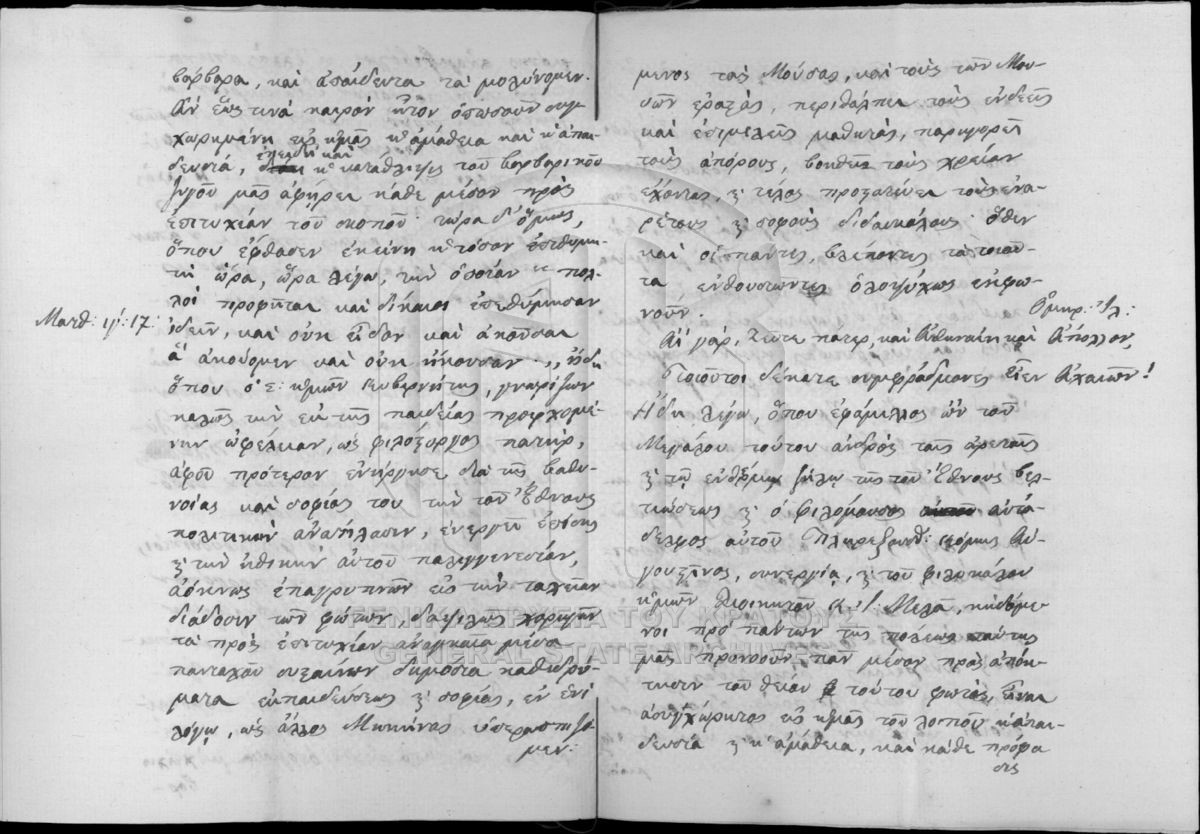 βάρβαρα, καὶ ἀπαίδευτα τὰ μολύνομεν.
Ἂν ἕως τινὰ καιρὸν ἦτον ὁπωσοῦν συγ-
χωρημένη εἰς ἡμᾶς ἡ ἀμάθεια καὶ ἡ ἀπαι-
δευσία, ἐπειδὴ καὶ ἡ κατάθλιψις τοῦ βαρβαρικοῦ
ζυγοῦ μᾶς ἀφῄρει κάθε μέσον πρὸς
ἐπιτυχίαν τοῦ σκοποῦ· τώρα δ' ὅμως,
ὅπου ἔφθασεν ἐκείνη ἡ τόσον ἐπιθυμη-
τὴ ὥρα, ὥρα λέγω, τὴν ὁποίαν „ πολ-
λοὶ προφῆται καὶ δίκαιοι ἐπεθύμησαν
Ματθ: ιγʹ: 17:
ἰδεῖν, καὶ οὐκ εἶδον καὶ ἀκοῦσαι
ἃ ἀκούομεν καὶ οὐκ ἤκουσαν „, ἤδη
ὅπου ὁ Σ: ἡμῶν Κυβερνήτης, γνωρίζων
καλῶς τὴν ἐκ τῆς παιδείας προερχομέ-
νην ὠφέλειαν, ὡς φιλόστοργος πατὴρ,
ἀφοῦ πρότερον ἐνήργησε διὰ τῆς βαθυ-
νοίας καὶ σοφίας του τὴν τοῦ Ἔθνους
πολιτικὴν ἀνάπλασιν, ἐνεργεῖ ἐπίσης
ϗ τὴν ἠθικὴν αὐτοῦ παλιγγενεσίαν,
ἀόκνως ἐπαγρυπνῶν εἰς τὴν ταχεῖαν
διάδοσιν τῶν φώτων, δαψιλῶς χορηγῶν
τὰ πρὸς ἐπιτυχίαν ἀναγκαῖα μέσα
πανταχοῦ συσταίνων δημόσια καθιδρύ-
ματα ἐκπαιδεύσεως ϗ σοφίας, ἐν ἑνὶ
λόγῳ, ὡς ἄλλος Μηκήνας ὑπερασπιζό-
μεν:
μενος τὰς Μούσας, καὶ τοὺς τῶν Μου-
σῶν ἐραστὰς, περιθάλπει τοὺς ἐνδεεῖς
καὶ ἐπιμελεῖς μαθητὰς, παρηγορεῖ
τοὺς ἀπόρους, βοηθεῖ τοὺς χρείαν
ἔχοντας, ϗ τέλος προστατεύει τοὺς ἐνα-
ρέτους ϗ σοφοὺς διδασκάλους· ὅθεν
καὶ οἱ πάντες, βλέποντες τὰ τοιαῦ-
τα ἐνθουσιῶντες ὁλοψύχως ἐκφω-
νοῦν.
Ὅμηρ: Ἰλ:
Αἲ γὰρ, Ζεῦτε πάτερ, καὶ Ἀθηναίη καὶ Ἄπολλον,
Τοιοῦτοι δέκα τε συμφράδμονες εἶεν Ἀχαιῶν!
Ἤδη λέγω, ὅπου ἐφάμιλλος ὢν τοῦ
Μεγάλου τούτου ἀνδρὸς ταῖς ἀρεταῖς
ϗ τῷ ἐνθέρμῳ ζήλῳ τῆς τοῦ Ἔθνους βελ-
τιώσεως ϗ ὁ φιλόμουσος αὐτά-
δελφος αὐτοῦ Πληρεξούσ: κόμης Αὐ-
γουστῖνος, συνεργίᾳ, ϗ τοῦ φιλοκάλου
ἡμῶν Διοικητοῦ Κ. Μελᾶ, κηδόμε-
νοι πρὸ πάντων τῆς πόλεως ταύτης
μᾶς προνοοῦν πᾶν μέσον πρὸς ἀπόκ-
τησιν τοῦ θείου τούτου φωτὸς, εἶναι
ἀσυγχώρητος εἰς ἡμᾶς τοῦ λοιποῦ ἡ ἀπαι-
δευσία ϗ ἡ ἀμάθεια, καὶ κάθε πρόφα
σις
ΓΕΝΙΚΑ ΑΡΧΕΙΑ ΤΟΥ ΚΡΑΤΟΥΣ
GENERAL STATE ARCHIVES